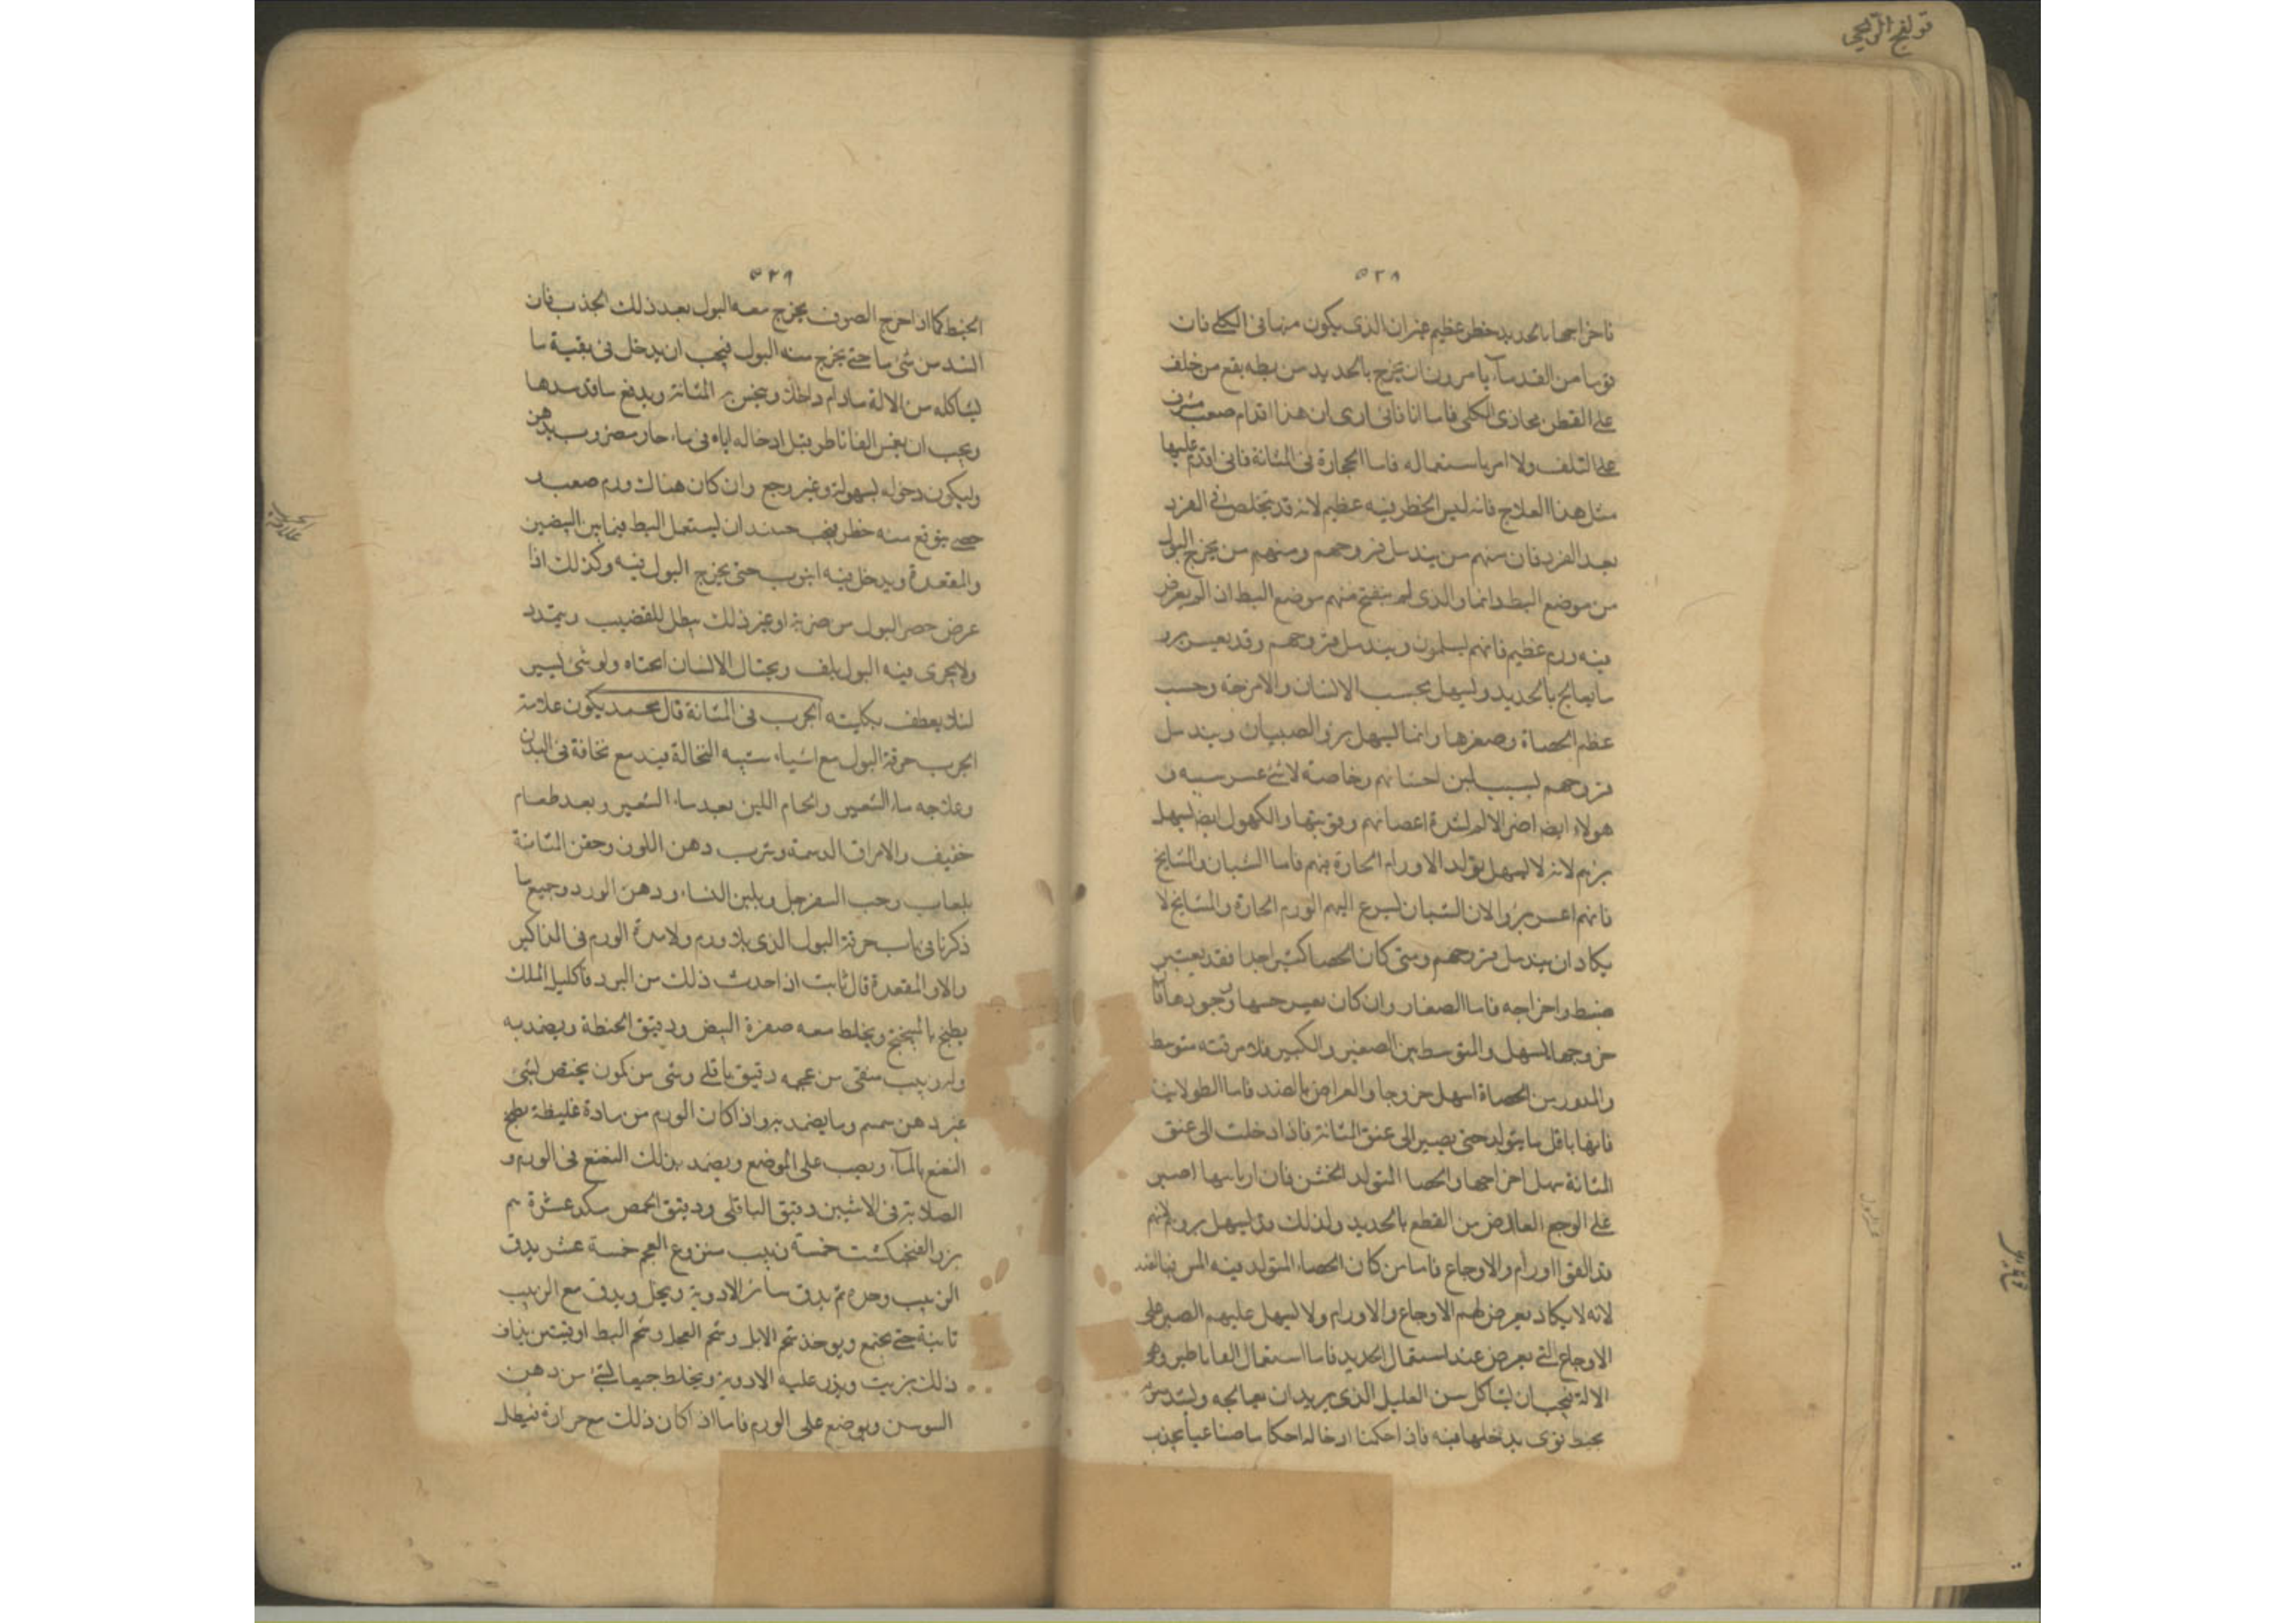 قولنج الريحي
٥٢٨
فاخراجها بالحديد خطر عظيم غير ان الذى يكون منها فى الكلى فان
قوما من القدماء يامرون ان يخرج بالحديد من بطه بقع من خلف
على القطن محاذى الكلى فاما انا فانى ارى ان هذا اقدام صعب مشرف
على التلف ولا امر باستعماله فاما الحجارة فى المثانة فانى اقدم عليها
مثل هذا العلاج فانه ليس الخطر فيه عظيم لانه قد يتخلص فى الفرد
بعد الفرد فان منهم من يندمل قروحهم ومنهم من يخرج البول
من موضع البط دائما والذى لم ينفتح منهم موضع البط ان لم يعرض
فيه ورم عظيم فانهم يسلمون ويندمل قروحهم وقد يعسر برو
ما يعالج بالحديد ويسهل بحسب الانسان والامزجة وحسب
عظم الحصاة وصغرها وانما يسهل برؤ الصبيان ويندمل
قروحهم لسبب لين اجسامهم وخاصة
هولاء ايضا الالم لشدة اعصابهم وقوتها والكهول ايضا يسهل
برئهم لانه لا يسهل تولد الاورام الحارة فيهم فاما الشبان والمشايخ
فانهم اعسر برؤا لان الشبان يسرع اليهم الورم الحارة والمشايخ لا
يكاد ان يندمل قروحهم ومتى كان الحصا كثيرا جدا فقد يعسر
ضبط واخراجه فاما الصغار وان كان يعسر حبسها وجودها فان
خروجها يسهل والمتوسط بين الصغير والكبير متوسط
والمدور من الحصاة اسهل خروجا والعراض بالضد فاما الطولانية
فانها باقل ما يتولد حتى يصير الى عنق المثانة فاذا دخلت الى عنق
المثانة سهل اخراجها والحصا المتولد الخشن فان اربابها اصبر
على الوجع العارض من القطع بالحديد ولذلك قد يسهل بروء لانهم
قد الفوا اورام والاوجاع فاما من كان الحصاء المتولد فيه املس فبالضد
لانه لا يكاد يعرض لهم الاوجاع والاورام ولا يسهل عليهم الصبر على
الاوجاع التى يعرض عند استعمال الحديد فاما استعمال القاثاطير وهى
الالة فيجب ان يشاكل سن العليل الذى يريد ان يعالجه ويشد من
بخيط قوى يدخلها فيه فاذا احكمنا ادخاله احكاما صناعيا يجذب
٥٢٩
الخيط كما اذا خرج الصوف يخرج معه البول بعد ذلك الجذب فان
انسد من شئ ما حتى يخرج منه البول فيجب ان يدخل فى بقية ما
يشاكله من الالة مادام داخلا ويحقن به المثانة ويدفع ما قد سدها
ويجب ان يغمس القاثاطر قبل ادخاله اياه فى ماء حار مضروب بدهن
وليكون دخوله بسهولة وغير وجع وان كان هناك ورم صعب
حتى يتوقع منه خطر فيجب حينئذ ان يستعمل البط فيما بين البيضين
والمقعدة ويدخل فيه انبوب حتى يخرج البول فيه وكذلك اذا
عرض حصر البول من ضربة او غير ذلك يبطل للقضيب ويتمدد
ولا يجرى فيه البول بلف ويحتال الانسان ولو شئ يسير
لئلا يعطف بكليته الجرب فى المثانة قال محمد يكون علامة
الجرب حرقة البول مع اشياء شبه النخالة فيه مع نحافة فى البدن
وعلاجه ماء الشعير والحمام اللين بعد ماء الشعير وبعد طعام
خفيف والامراق الدسمة ويشرب دهن اللوز وحقن المثانة
بلعاب وحب السفرجل وبلبن النساء ودهن الورد وجميع ما
ذكرنا فى باب حرقة البول الذى بلا ورم ولا مدة الورم فى المذاكير
والا والمقعدة قال ثابت اذا حدث ذلك من البرد فاكليل الملك
يطبخ بالميبختج ويخلط معه صفرة البيض ودقيق الحنطة ويضمد به
وزبيب منقى من عجمه دقيق باقلى وشى من كمون يختص لشئ
غير دهن سمسم ومما يضمد به واذا كان الورم من مادة غليظة يطبخ
النعنع بالماء ويصب على الموضع ويضمد بذلك النعنع فى الورم و
الصلابة فى الانثيين دقيق الباقلى ودقيق الحمص سكر عشرة
بزر الفنجنكشت خمسة زبيب منزوع العجم خمسة عشر يدق
الزبيب وحده ثم يدق سائر الادوية وينخل ويدق مع الزبيب
ثانية حتى يجتمع ويوخذ شحم الابل وشحم العجل وشحم البط اوقيتين يذاف
ذلك بزيت ويذر عليه الادوية ويخلط جميعا لشئ من دهن
السوسن ويوضع على الورم فاما اذا كان ذلك مع حرارة فيطلى